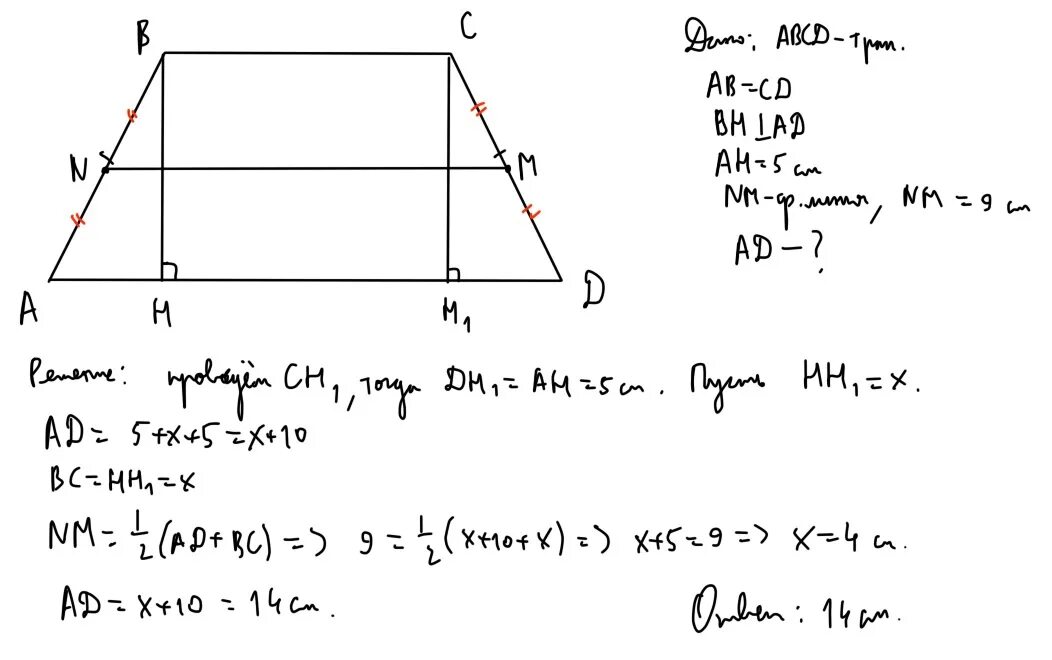 B C
N M
A H H₁ D
Дано: ABCD-трап.
AB=CD
BH⊥AD
AH=5 см
NM-ср.линия, NM = 9 см
AD - ?
Решение: проведём CH₁, тогда DH₁ = AH = 5 см. Пусть HH₁ = x.
AD = 5+x+5 = x+10
BC = HH₁ = x
NM = 1/2 (AD+BC) => 9 = 1/2 (x+10+x) => x+5=9 => x=4 см.
AD = x+10 = 14 см.
Ответ: 14 см.